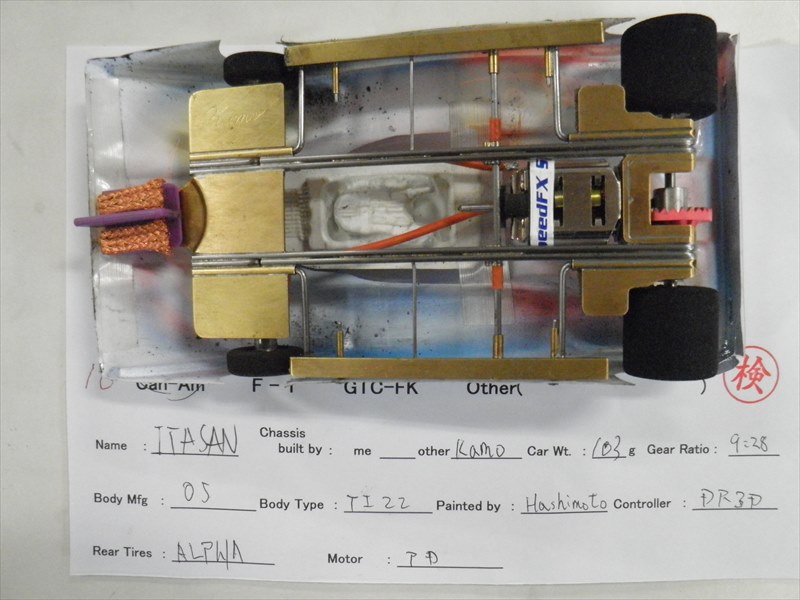 eedFX S
16 Can-Am F-1 GTC-FK Other( )
検
Name : ITASAN Chassis built by : me other Kamo Car Wt. : 103 g Gear Ratio : 9:28
Body Mfg : O5 Body Type : TI22 Painted by : Hashimoto Controller : DR3D
Rear Tires : ALPHA Motor : PD